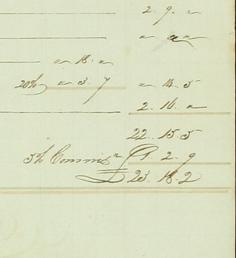 2. 9. "
" 18. "
20% " 3. 7 " 14. 5
22. 15. 5
5% Commisn 1. 2. 9
£23. 18. 2